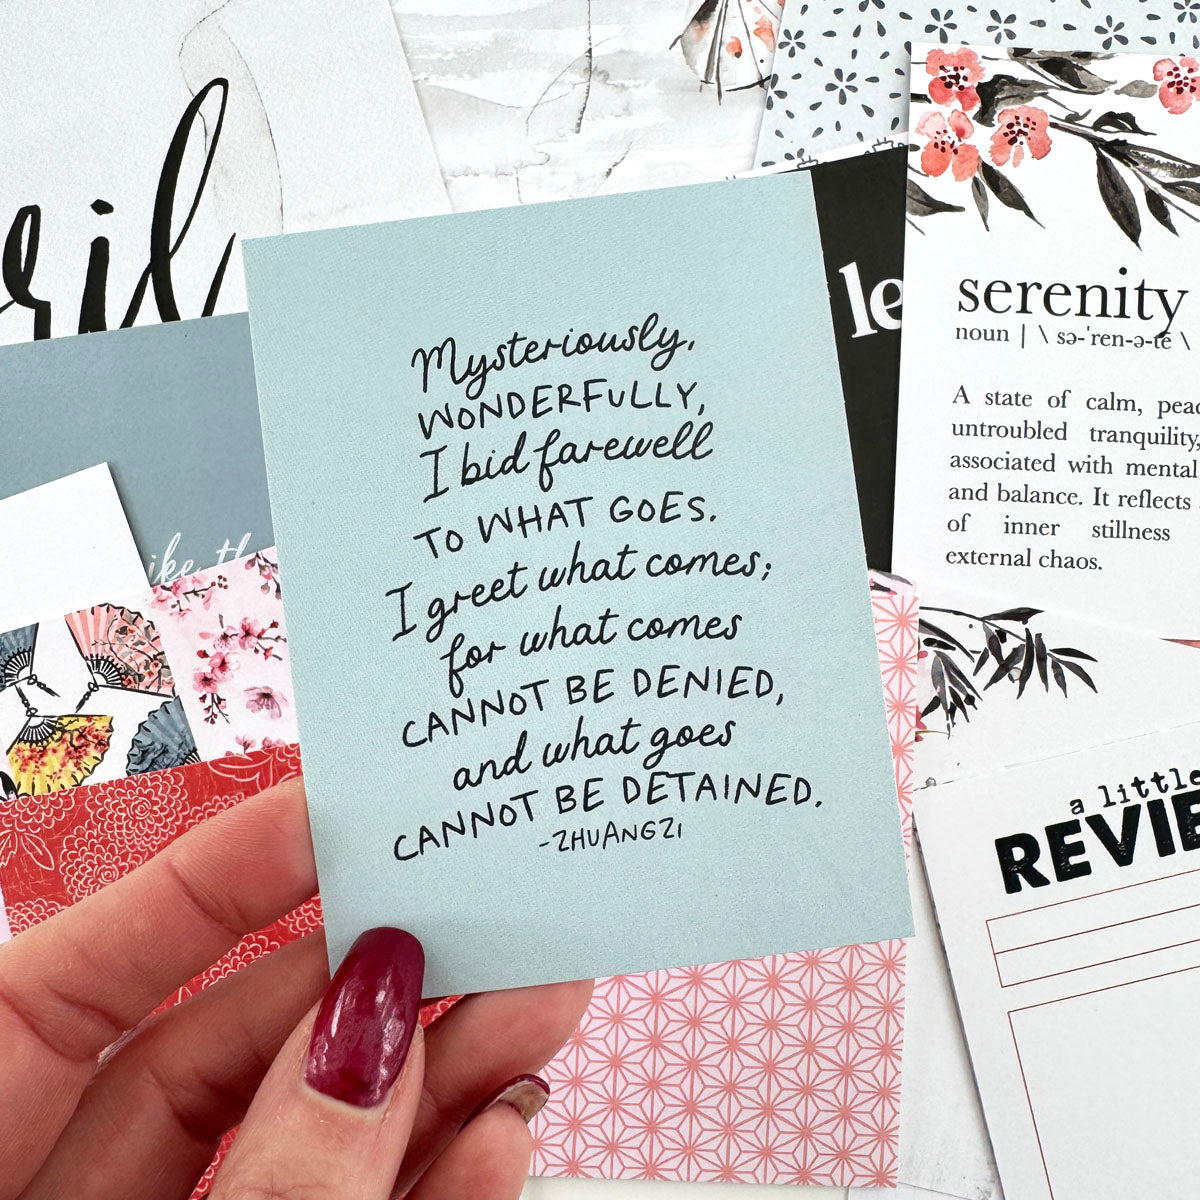 Mysteriously,
WONDERFULLY,
I bid farewell
TO WHAT GOES.
I greet what comes;
for what comes
CANNOT BE DENIED,
and what goes
CANNOT BE DETAINED.
-ZHUANGZI
ril
le
serenity
noun | \ sə-ˈren-ə-tē \
A state of calm,
untroubled tranquility,
associated with mental
and balance. It reflects
of inner stillness
external chaos.
a little